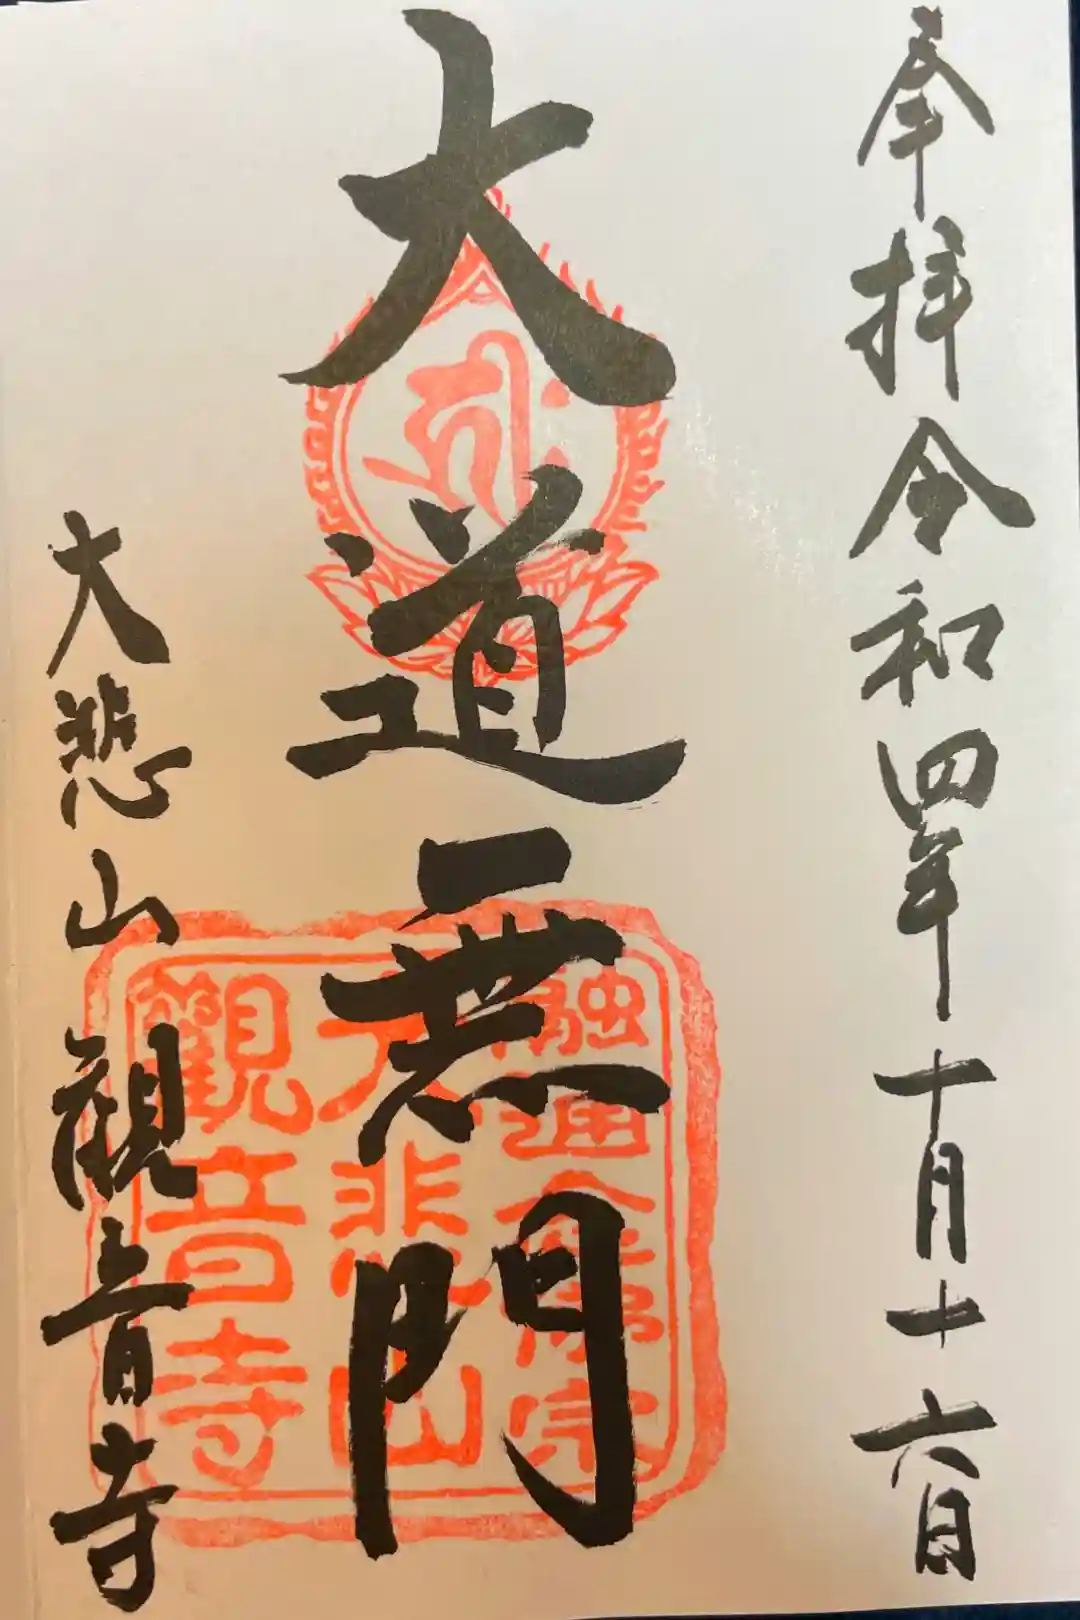 奉拝 令和四年十月十六日
大道無門
大悲山 観音寺
融通念佛宗
大悲山
觀音寺